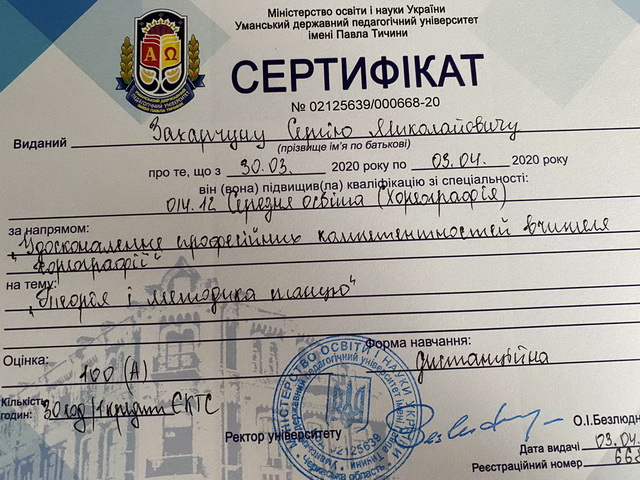 Міністерство освіти і науки України
Уманський державний педагогічний університет
імені Павла Тичини
СЕРТИФІКАТ
№ 02125639/000668-20
Виданий Захарчуну Сергію Миколайовичу
(прізвище ім'я по батькові)
про те, що з 30.03. 2020 року по 03.04. 2020 року
він (вона) підвищив(ла) кваліфікацію зі спеціальності:
014.12 Середня освіта (Хореографія)
за напрямом:
„Удосконалення професійних компетентностей вчителя
хореографії"
на тему:
„Теорія і методика танцю"
Форма навчання:
дистанційна
Оцінка: 100 (А)
Кількість
годин: 30 год/1 кредит ЄКТС
Ректор університету
О.І.Безлюдн
Дата видачі 03.04.
Реєстраційний номер 668